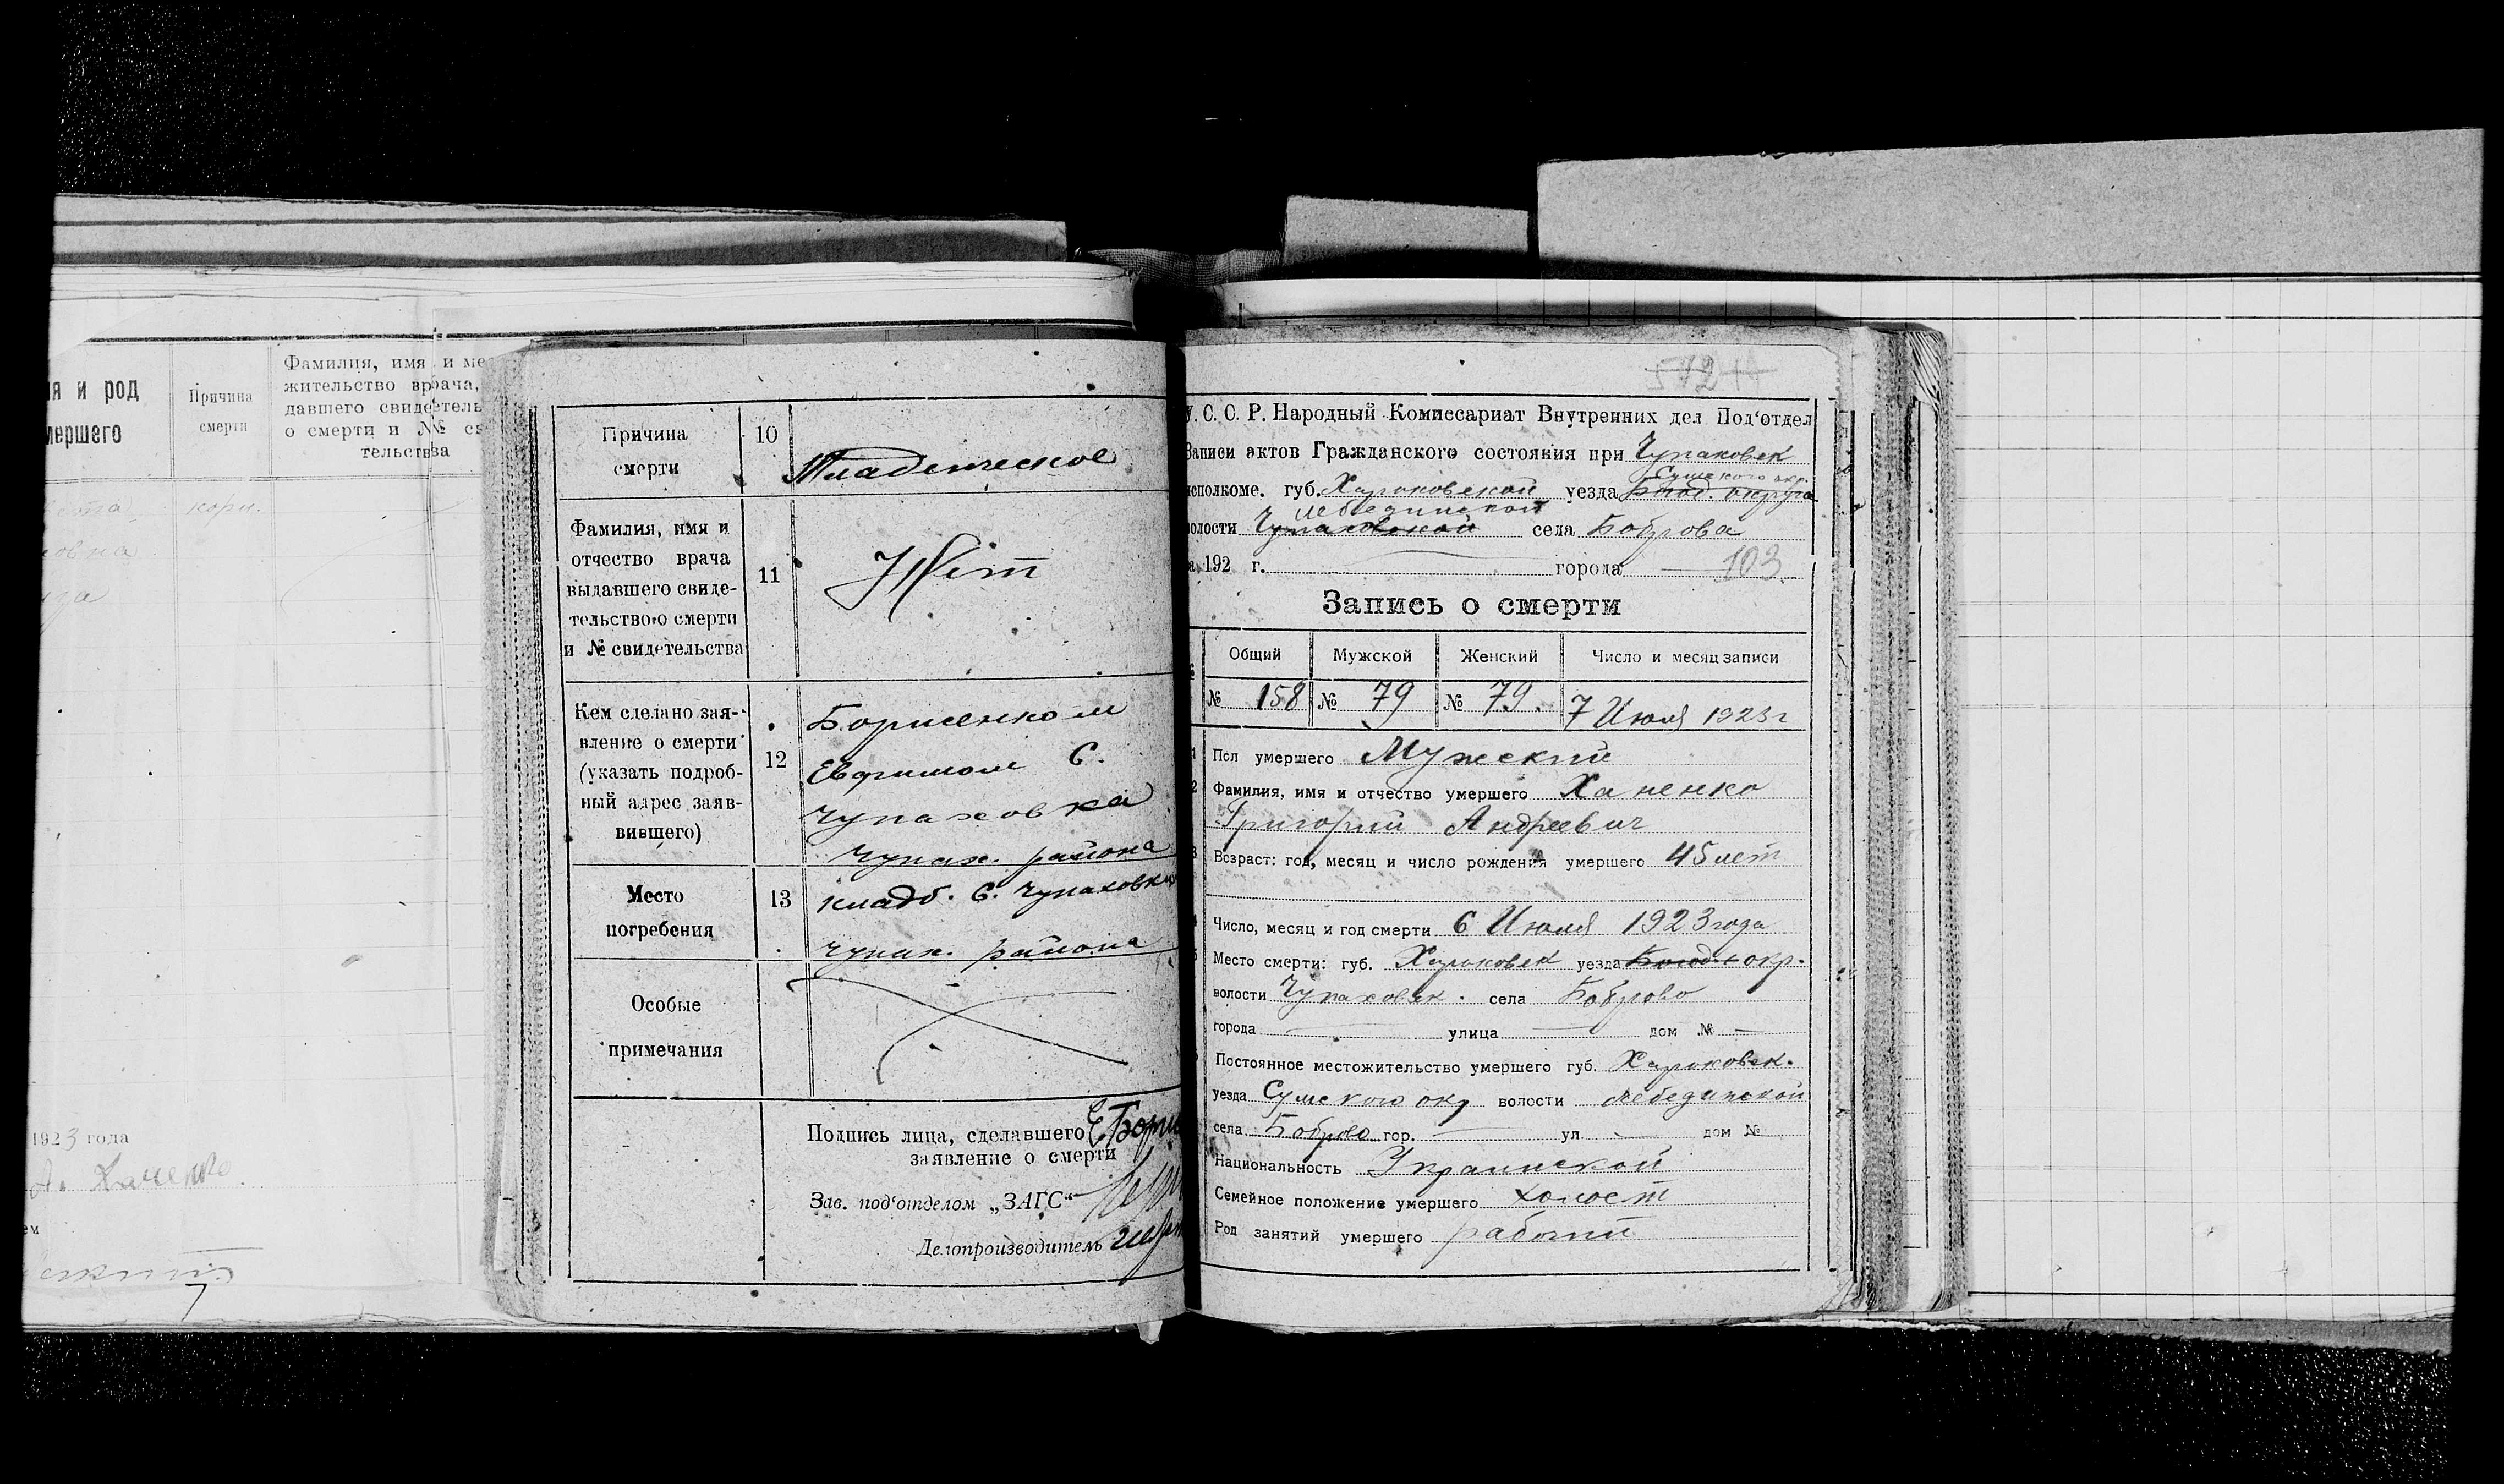 я и род
мершего
Причина
смерти
Фамилия, имя и ме
жительство врача,
давшего свидетель
о смерти и №№ св
тельства
кори.
1923 года
Ханенко
ем
Причина
смерти
10
Младенческое
Фамилия, имя и
отчество врача
выдавшего свиде-
тельство о смерти
и № свидетельства
11
Нет
Кем сделано зая-
вление о смерти
(указать подроб-
ный адрес заяв-
вившего)
12
Борисенком
Евфимом С.
Чупаховка
Чупах. района
Место
погребения
13
кладб. С. Чупаховки
Чупах. района
Особые
примечания
Подпись лица, сделавшего Е Бори
заявление о смерти
Зав. под'отделом „ЗАГС“
Делопроизводитель
572
У. С. С. Р. Народный Комиссариат Внутренних дел Под'отдел
Записи актов Гражданского состояния при Чупаховск
Сумского окр.
исполкоме. губ. Харьковской уезда Бног. округа
Лебединской
волости Чупаховской села Боброва
а 192 г. города 103
Запись о смерти
Общий Мужской Женский Число и месяц записи
№ 158 № 79 № 79. 7 Июля 1923 г
1 Пол умершего Мужский
2 Фамилия, имя и отчество умершего Ханенко
Григорий Андреевич
3 Возраст: год, месяц и число рождения умершего 45 лет
Число, месяц и год смерти 6 Июля 1923 года
5 Место смерти: губ. Харьковск уезда Богод. окр.
волости Чупаховск. села Боброво
города улица дом №
Постоянное местожительство умершего губ. Харьковск.
уезда Сумского окр волости Лебединской
села Боброво гор. ул. дом №
Национальность Украинской
Семейное положение умершего холост
Род занятий умершего рабочий